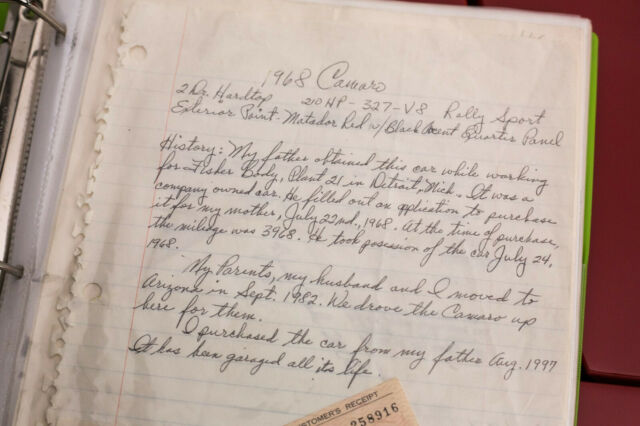 1968 Camaro
2 Dr. Hardtop 210 HP - 327 - V8 Rally Sport
Exterior Paint: Matador Red w/Black Accent Quarter Panel
History: My father obtained this car while working
for Fisher Body, Plant 21 in Detroit, Mich. It was a
company owned car. He filled out an application to purchase
it for my mother, July 22nd, 1968. At the time of purchase,
the mileage was 3968. He took posession of the car July 24,
1968.
My Parents, my husband and I moved to
Arizona in Sept. 1982. We drove the Camaro up
here for them.
I purchased the car from my father Aug. 1997
It has been garaged all its life.
STOMER'S RECEIPT
258916